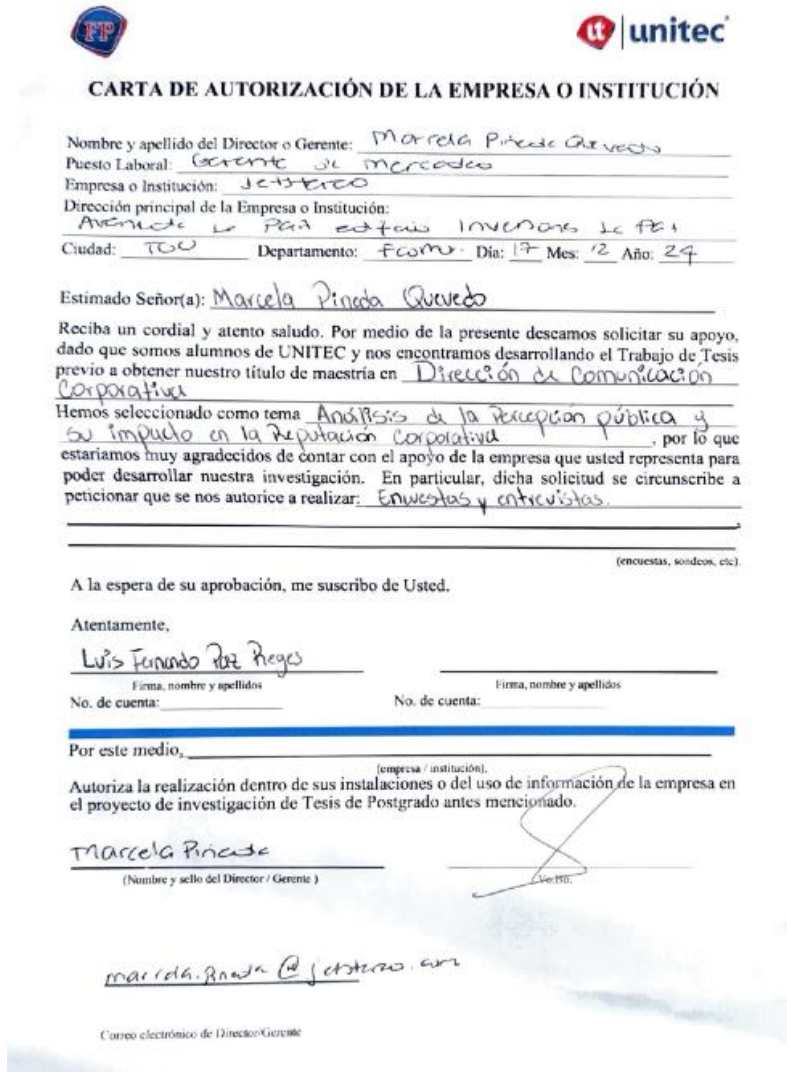 FP
ut unitec
CARTA DE AUTORIZACIÓN DE LA EMPRESA O INSTITUCIÓN
Nombre y apellido del Director o Gerente: Marcela Pineda Quevedo
Puesto Laboral: Gerente de mercadeo
Empresa o Institución: Jetstereo
Dirección principal de la Empresa o Institución:
Avenida la Paz Inversiones la Paz
Ciudad: TGU Departamento: Dia: 17 Mes: 12 Año: 24
Estimado Señor(a): Marcela Pineda Quevedo
Reciba un cordial y atento saludo. Por medio de la presente deseamos solicitar su apoyo,
dado que somos alumnos de UNITEC y nos encontramos desarrollando el Trabajo de Tesis
previo a obtener nuestro título de maestría en Dirección de Comunicación
Corporativa
Hemos seleccionado como tema Análisis de la Percepción pública y
su impacto en la Reputación Corporativa, por lo que
estaríamos muy agradecidos de contar con el apoyo de la empresa que usted representa para
poder desarrollar nuestra investigación. En particular, dicha solicitud se circunscribe a
peticionar que se nos autorice a realizar: Encuestas y entrevistas.
(encuestas, sondeos, etc).
A la espera de su aprobación, me suscribo de Usted,
Atentamente,
Luis Fernando Paz Reyes
Firma, nombre y apellidos Firma, nombre y apellidos
No. de cuenta: No. de cuenta:
Por este medio,
(empresa / institución),
Autoriza la realización dentro de sus instalaciones o del uso de información de la empresa en
el proyecto de investigación de Tesis de Postgrado antes mencionado.
Marcela Pineda
(Nombre y sello del Director / Gerente ) Vo.Bo.
marcela.pineda@jetstereo.com
Correo electrónico de Director/Gerente